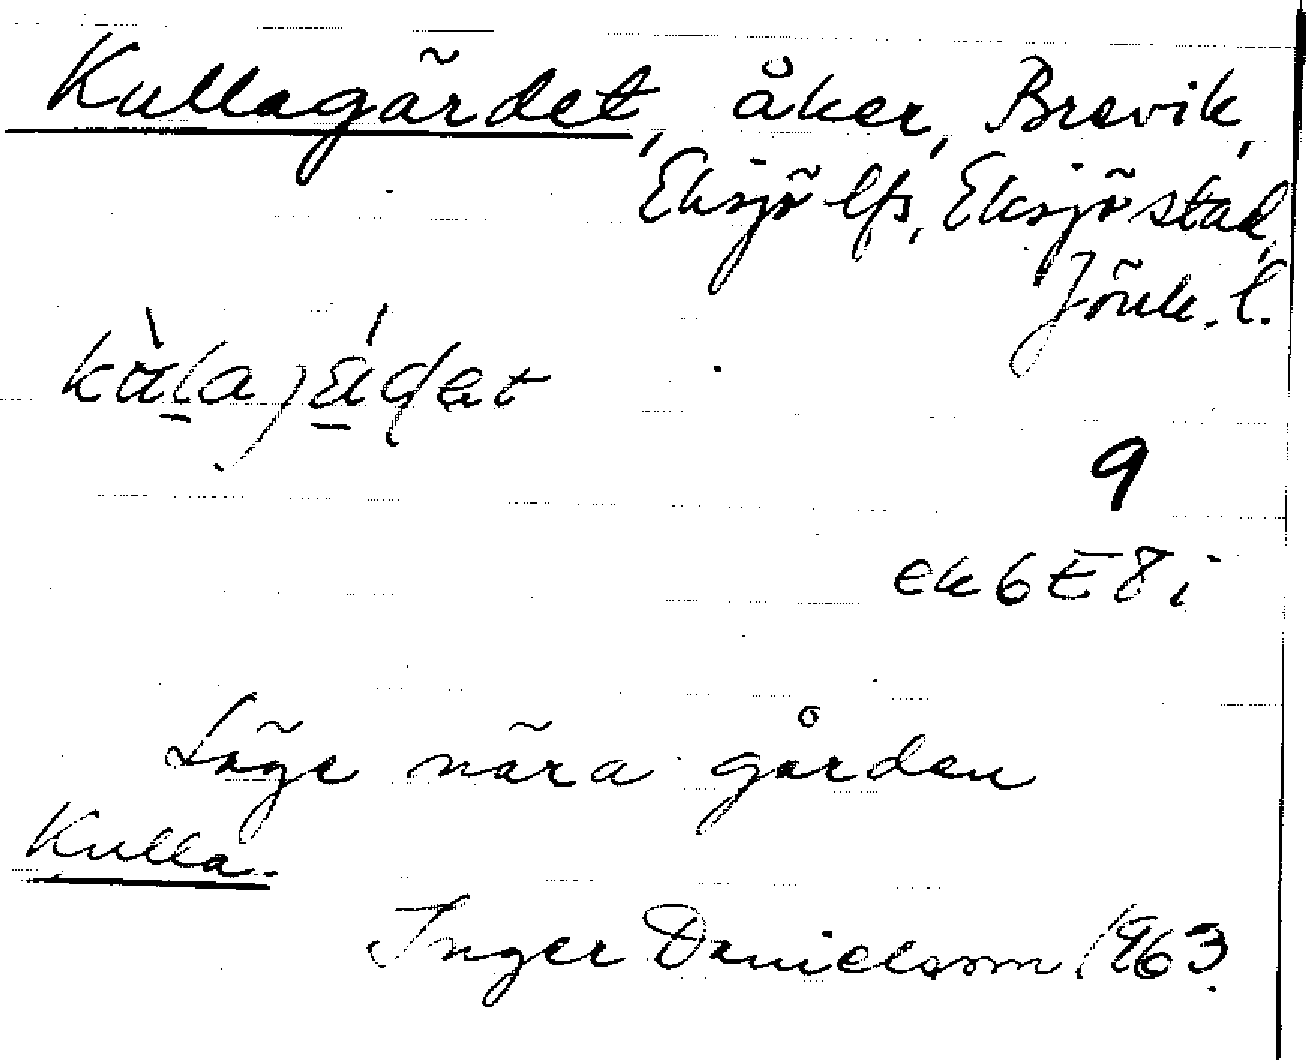 Kullagärdet, åker, Brevik,
Eksjö lfs, Eksjö stad,
Jönk. l.
9
ek 6 E 8 i
Läge nära gården
Kulla.
Inger Danielsson 1963.